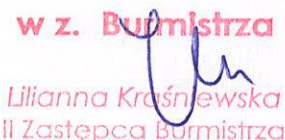 w z. Burmistrza
Lilianna Kraśniewska
II Zastępca Burmistrza